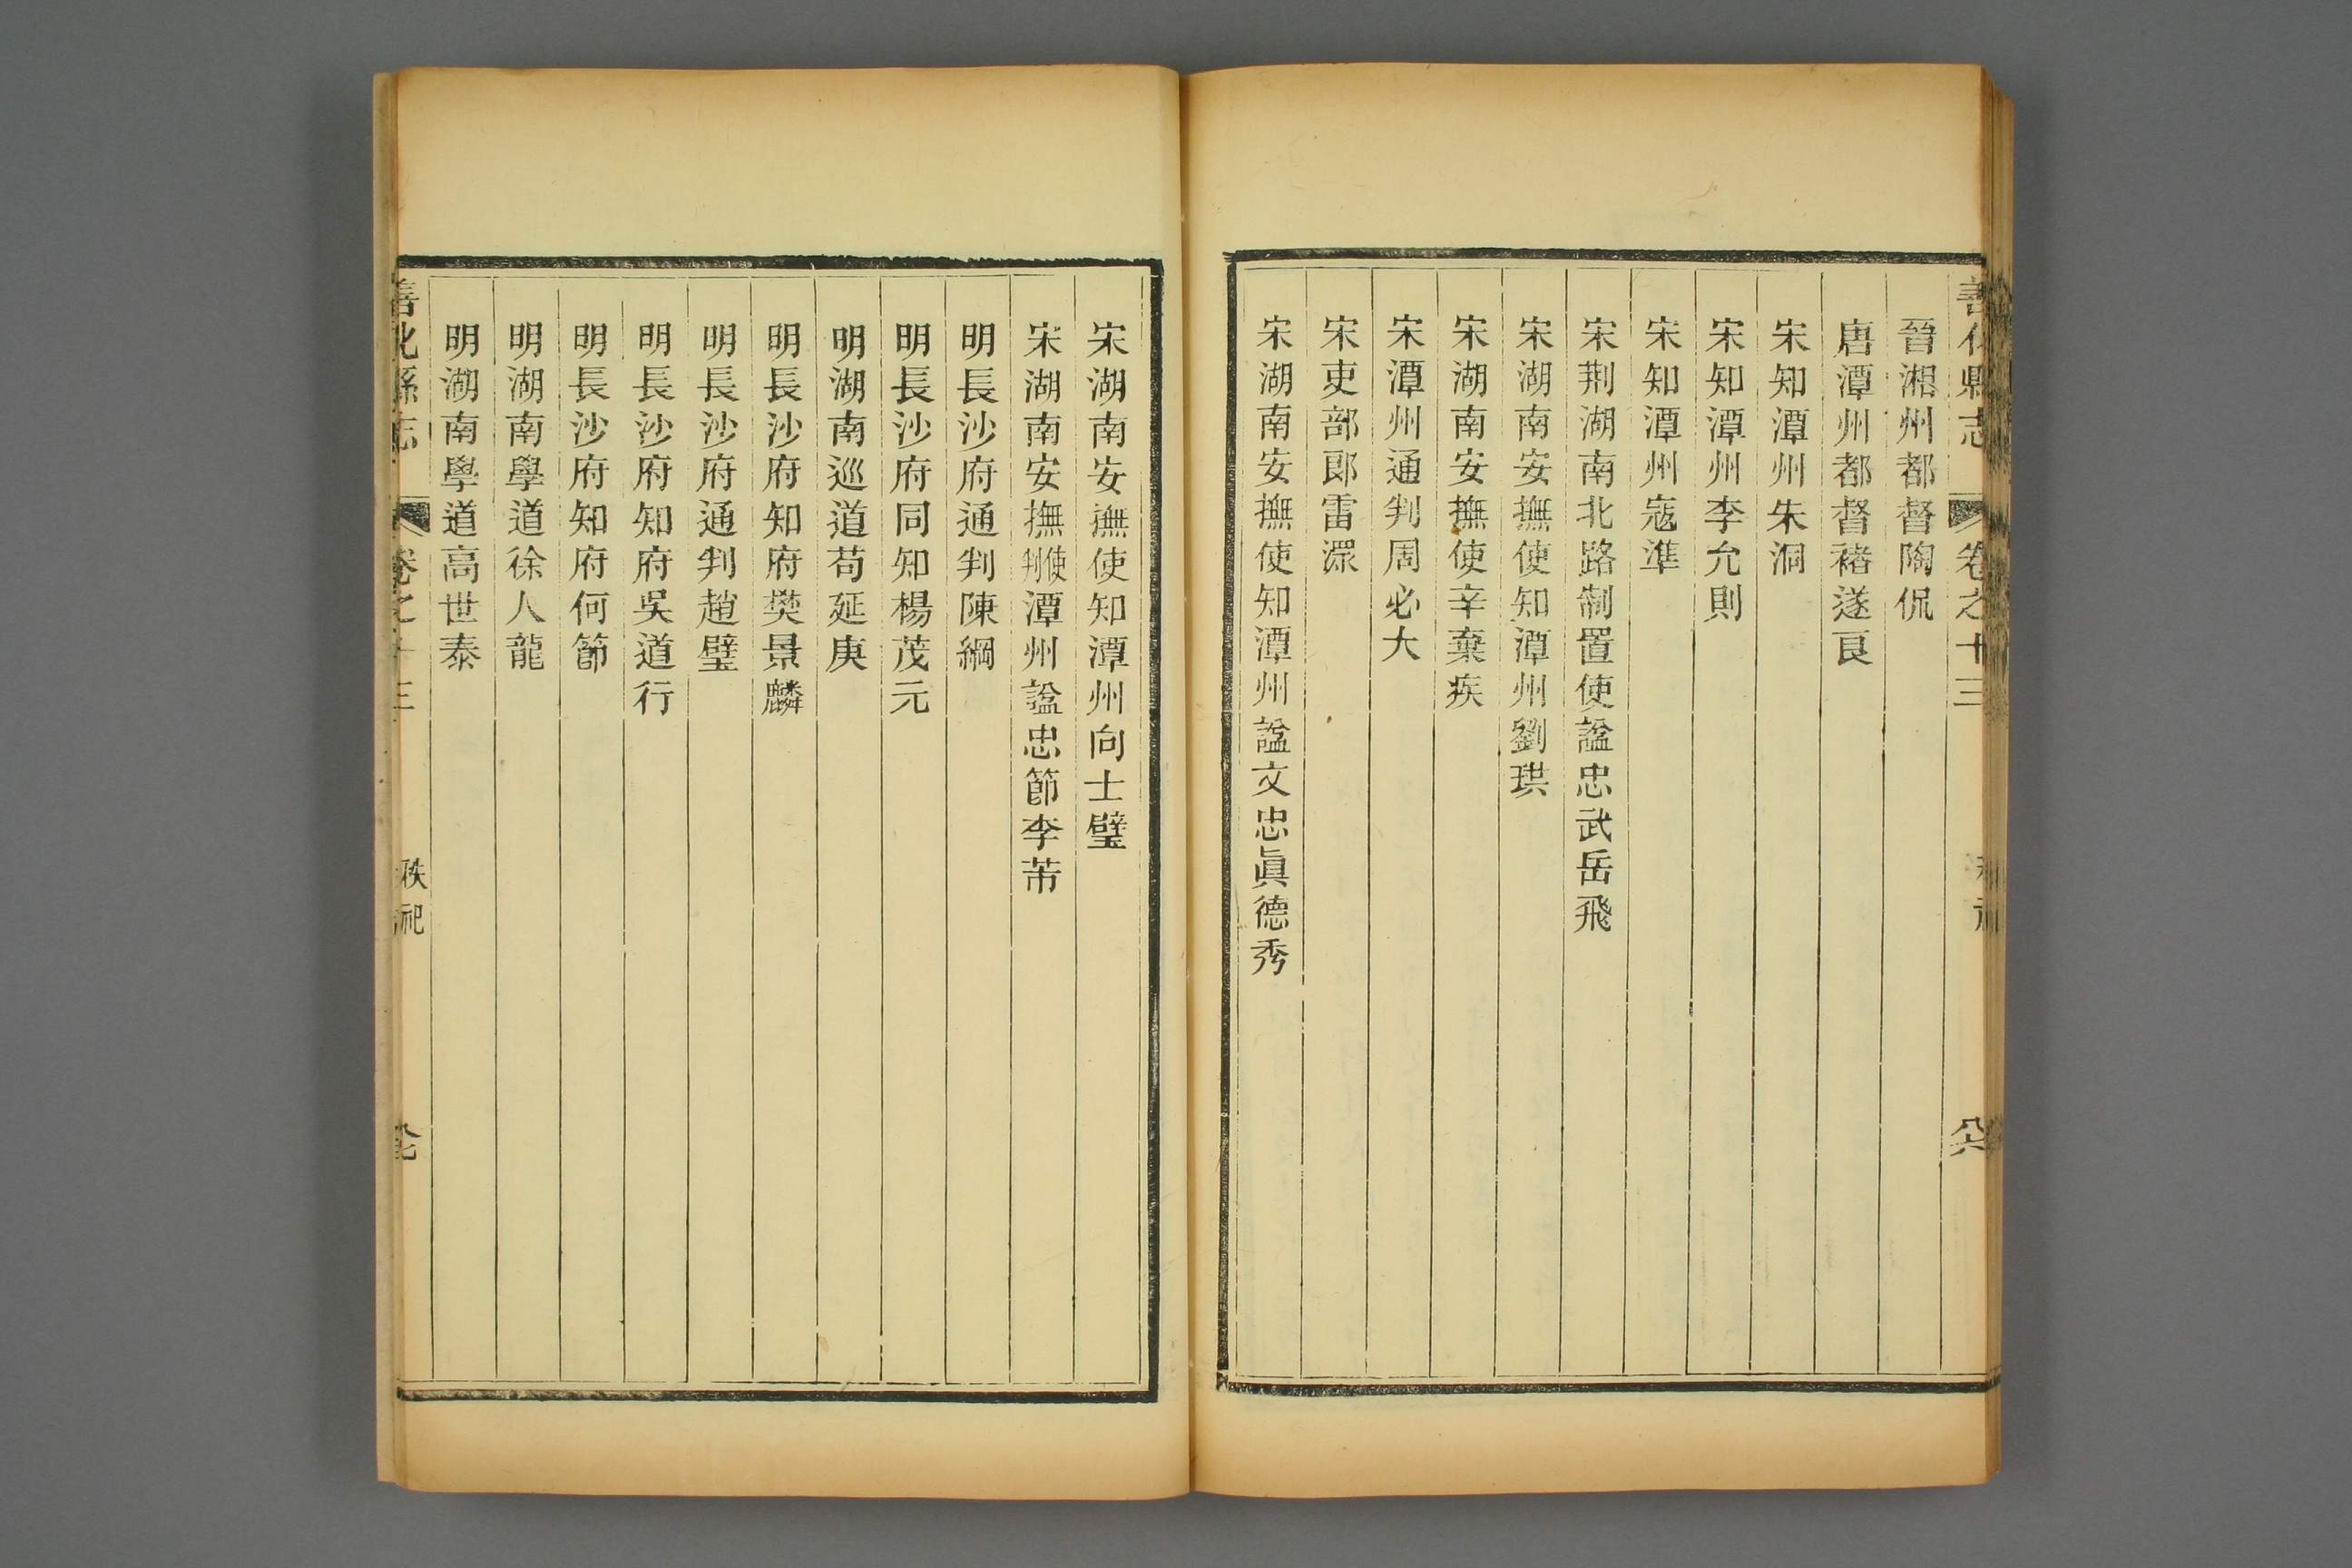 善化縣志
卷之十三
晉湘州都督陶侃
唐潭州都督褚遂良
宋知潭州朱洞
宋知潭州李允則
宋知潭州寇準
宋荆湖南北路制置使諡忠武岳飛
宋湖南安撫使知潭州劉珙
宋湖南安撫使辛棄疾
宋潭州通判周必大
宋吏部郎雷澋
宋湖南安撫使知潭州諡文忠眞德秀
宋湖南安撫使知潭州向士璧
宋湖南安撫使判潭州諡忠節李芾
明長沙府通判陳綱
明長沙府同知楊茂元
明湖南巡道苟延庚
明長沙府知府樊景麟
明長沙府通判趙璧
明長沙府知府吳道行
明長沙府知府何節
明湖南學道徐人龍
明湖南學道高世泰
善化縣志
卷之十三
秩祀